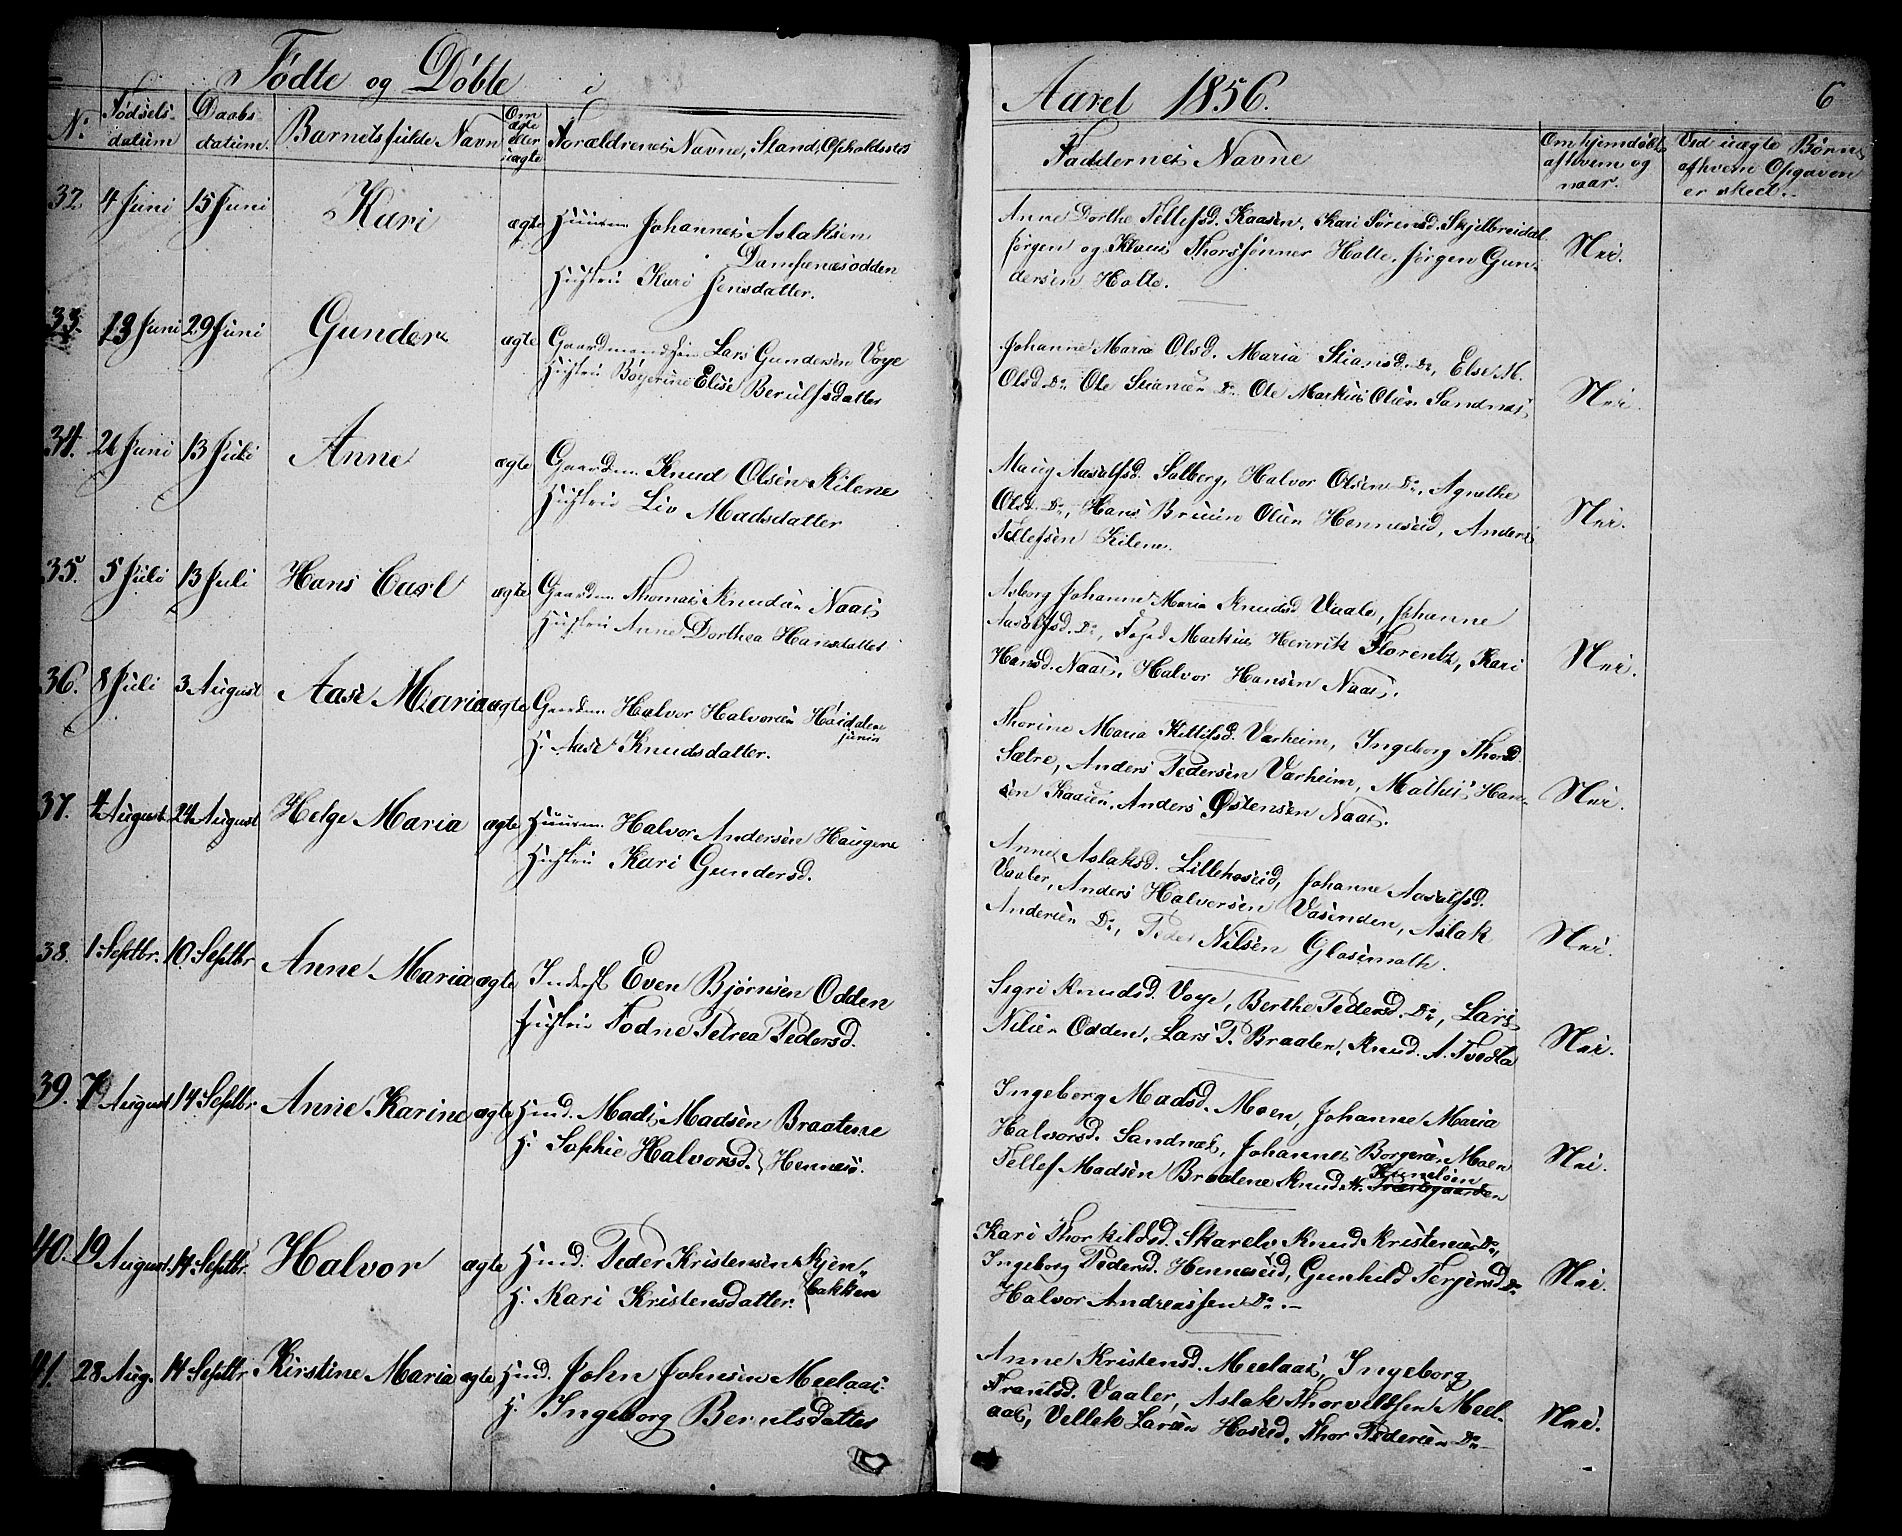 Fødte og Døbte i
Aaret 1856.
6
No
Fødsels-
datum
Daabs-
datum.
Barnets fulde Navn
Om
ægte
eller
uægte
Forældrenes Navne, Stand, Opholdssted
Faddernes Navne
Om hjemdøbt,
af hvem og
naar.
Ved uægte Børn,
af hvem Opgaven
er skeet.
32 4 Juni 15 Juni Kari ægte Huusm. Johannes Aslaksen
Damsenæsodden
Hustru Kari Jensdatter.
Anne Dorthe Tellefsd. Kaasen, Kari Sørensd. Skjelbreidal
Jørgen og Klaus Thorssønner Holte, Jørgen Gun-
dersen Holte.
Nei.
33. 13 Juni 29 Juni Gunder ægte Lars Gundersen Voje
Hustru Elise Berulfsdatter
Johanne Maria Olsd. Maria Stiansd. Do, Else M.
Olsd. Do Ole Stiansen Do. Ole Markus Olsen Sandnæs
Nei.
34. 26 Juni 13 Juli Anne ægte Gaardm. Knud Olsen Kilene
Hustru Liv Madsdatter
Aasulfsd. Solberg, Halvor Olsen Do, Agnethe
Olsd. Do, Hans Bruun Olsen Henneseid, Anders
Tellefsen Kilene.
Nei.
35. 5 Juli 13 Juli Hans Carl ægte Gaardm. Thomas Knudsen Naas
Hustru Anne Dorthea Hansdatter
Asborg Johanne Maria Knudsd Vaale, Johanne
Aasulfsd. Do, Foged Markus Henrik Florentz, Kari
Hansd. Naas, Halvor Hansen Naas.
Nei.
36. 8 Juli 3 August Aase Maria ægte Gaardm. Halvor Halvorsen Høidalen
junin
H. Aase Knudsdatter.
Thorine Maria Kittilsd. Varheim, Ingeborg Thorsd
Sætre, Anders Pedersen Varheim, Mathis Han-
sen Kaasen, Anders Østensen Naas.
Nei.
37. 4 August 24 August Helge Maria ægte Huusm. Halvor Andersen Haugene
Hustru Kari Gundersd.
Anne Aslaksd. Lillehoseid, Johanne Aasulfsd.
Vaaler, Anders Halvorsen Vasenden, Aslak
Andersen Do, Peder Nilsen Glosimoth.
Nei.
38. 1 Septbr. 10 Septbr Anne Maria ægte Inderst Even Bjørnsen Odden
Hustru Todne Petrea Pedersd.
Segri Knudsd. Voje, Berthe Pedersd. Do, Lars
Nilsen Odden, Lars P. Braaten, Knud A. Tvedta
Nei.
39. 7 August 14 Septbr Anne Karine ægte Hmd. Mads Madsen Braatene
H. Sophie Halvorsd. Hennæs.
Ingeborg Madsd. Moen, Johanne Maria
Halvorsd. Sandnæs, Johannes Borgersen Moen
Tellef Madsen Braatene Knud N. Træstegaarden
Nei.
40. 19 August 14 Septbr. Halvor ægte Hmd. Peder Kristensen Skjen-
bakken
H. Kari Kristensdatter.
Kari Thorkildsd. Skarelv Knud Kristensen Do,
Ingeborg Pedersd. Henneseid, Gunhild Terjersd Do
Halvor Andreassen Do. -
Nei.
41. 28 Aug. 14 Septbr Kirstine Maria ægte Hmd. John Johnsen Meelaas
H. Ingeborg Berntsdatter
Anne Kristensd. Meelaas, Ingeborg
Frantsd. Vaaler, Aslak Thorveldsen Meel-
aas, Vellek Larsen Hoseid, Thor Pedersen Do
Nei.